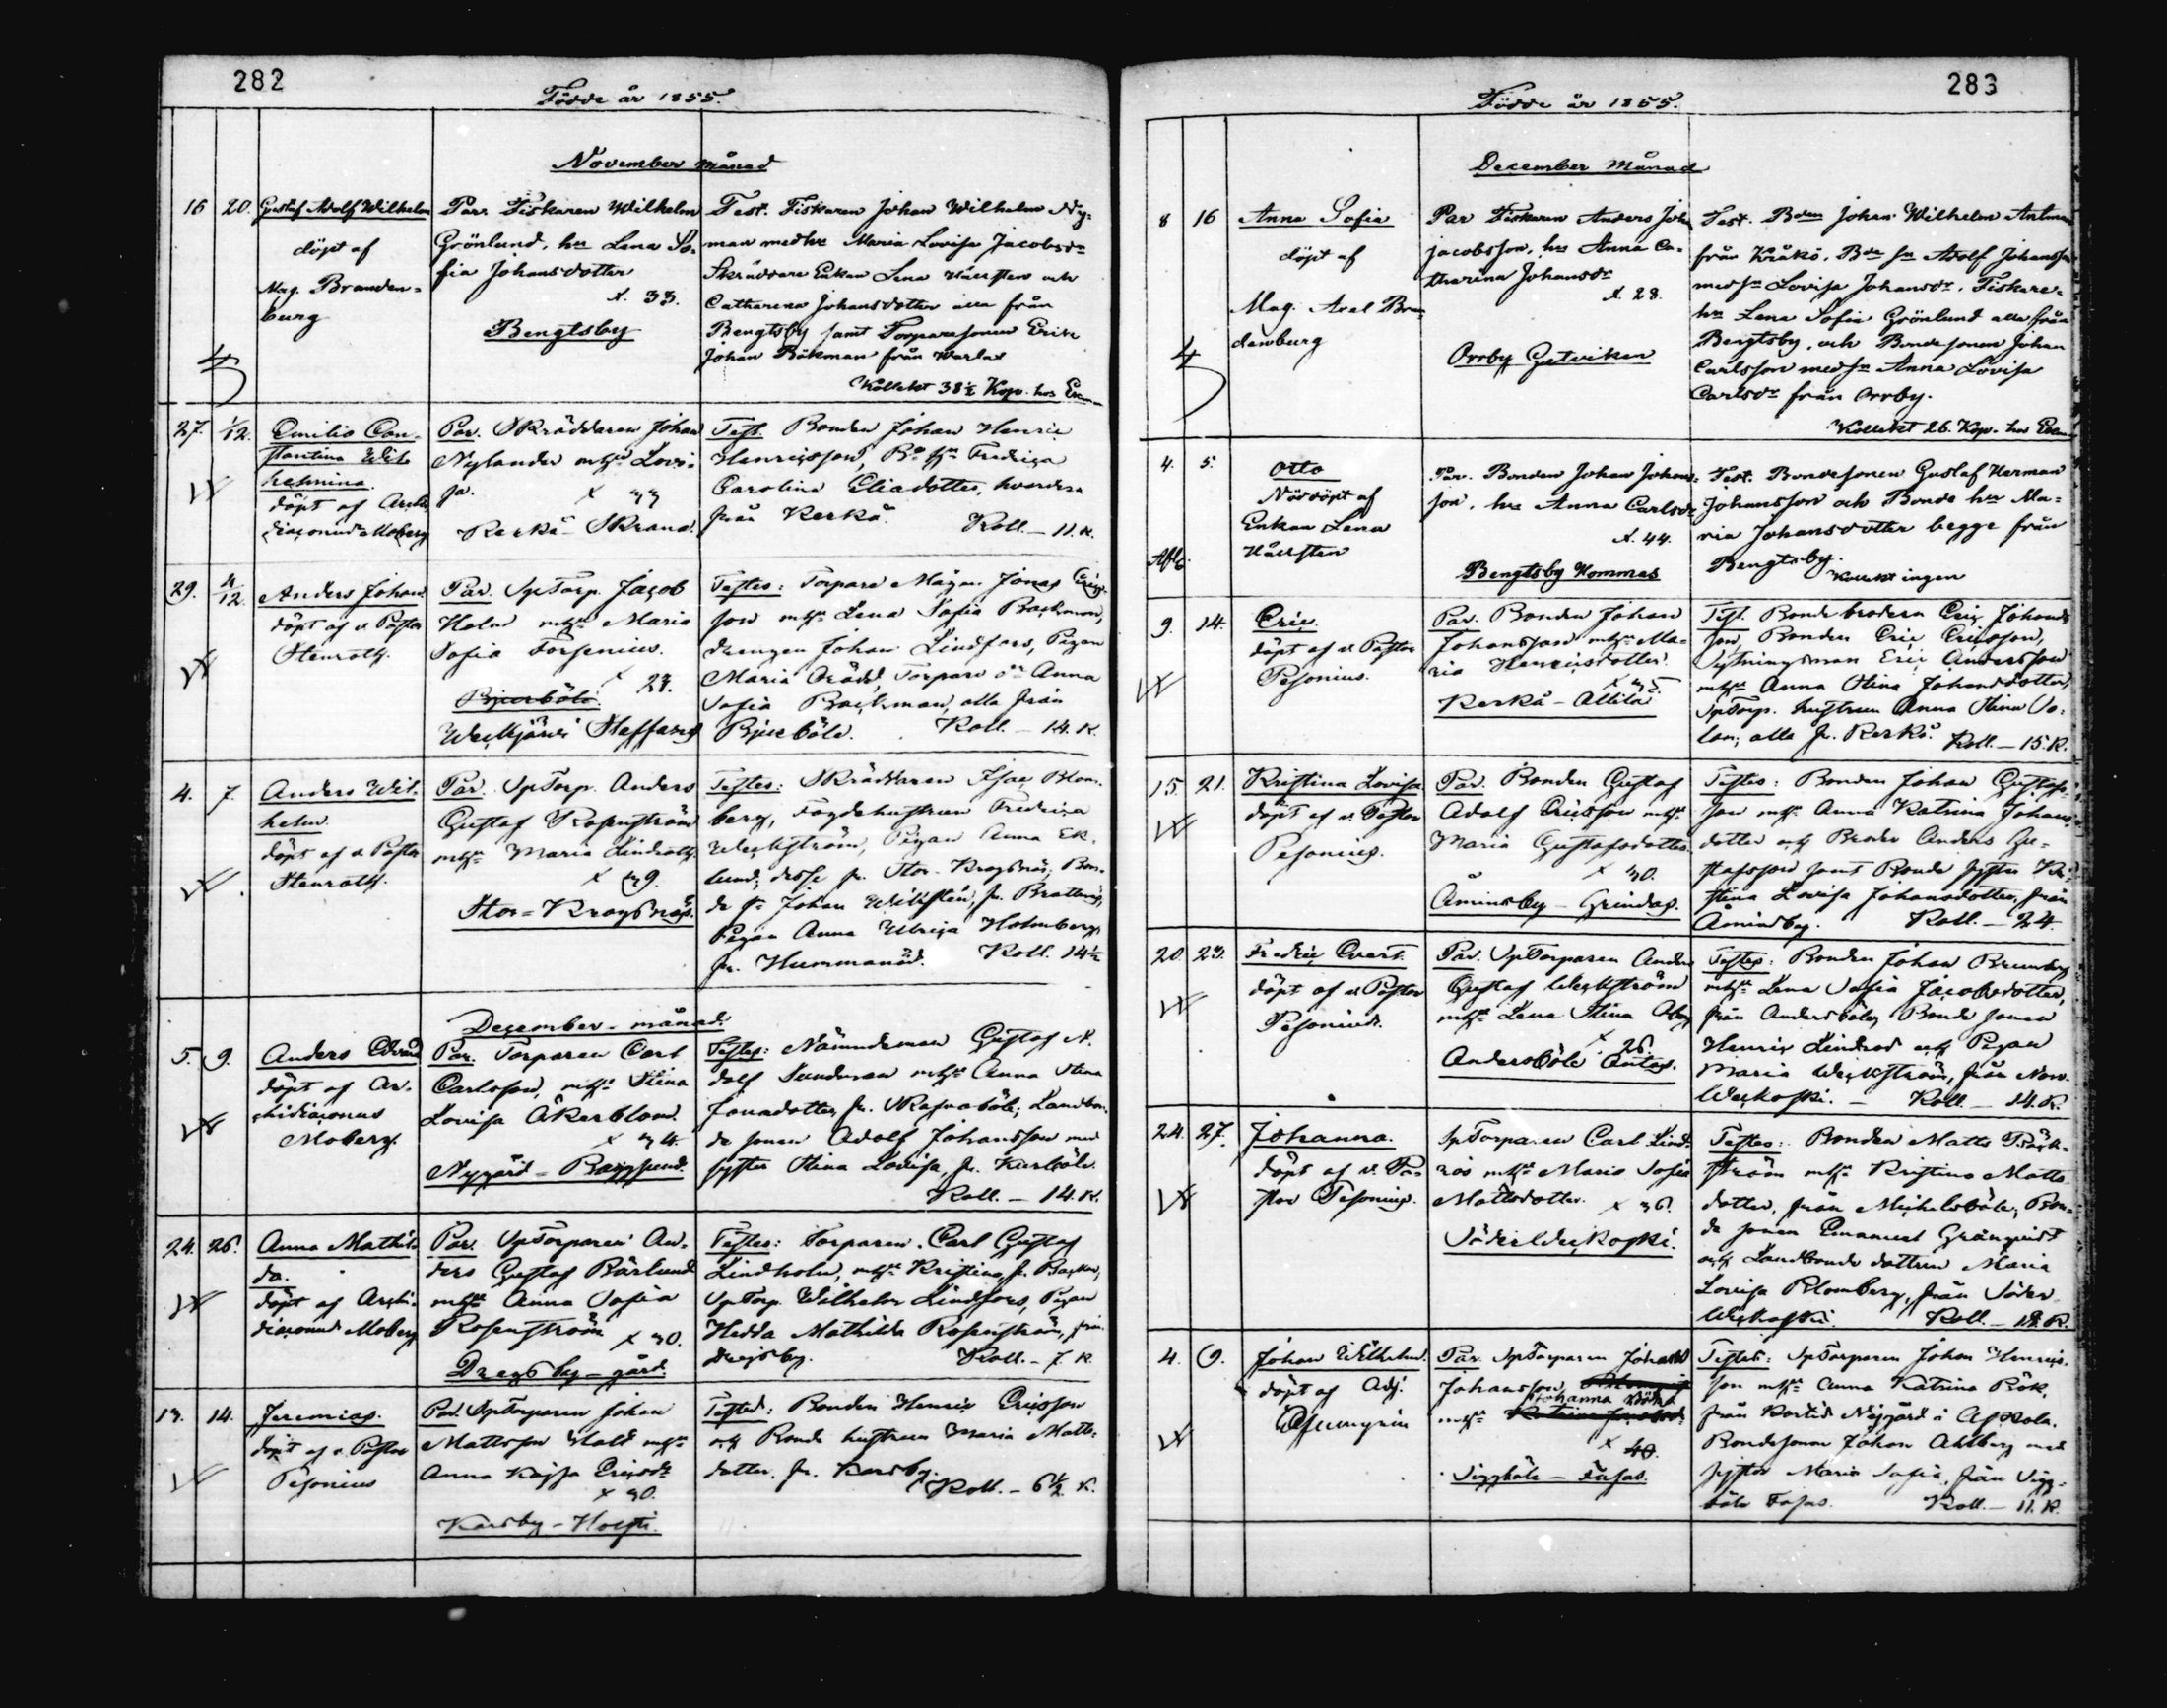 282
Födde år 1855.
November månad
16 20. Gustaf Adolf Wilhelm
döpt af
Mag. Branden-
burg
Par. Fiskaren Wilhelm
Grönlund, hu Lena So-
fia Johansdotter
x. 33.
Bengtsby
Test. Fiskaren Johan Wilhelm Ny-
man med hu Maria Lovisa Jacobsdr
Skräddare Enkan Lena Hällsten och
Catharina Johansdotter alla från
Bengtsby samt Torparesonen Eric
Johan Bökman från
Kollekt 38½ Kop. hos
27. 1/12. Emilia Con-
stantina Wil-
helmina.
döpt af Archi-
diaconus Moberg
Par. Skräddaren Johan
Nylander mhu Lovi-
sa.
x 33
Kerkå Skrand.
Test. Bonden Johan Henric
Henricsson, Fredrica
Carolina Eliadotter, hvardera
från Kerkå. Koll. — 11. K.
29. 4/12. Anders Johan.
döpt af v. Pastor
Stenroth.
Par. SpTorp. Jacob
Holm mhu Maria
Sofia Forsenius.
x 23.
Bjurböle.
Weckjärvi Staffans
Testes: Torpare Mågen Jonas Erics-
son mhu Lena Sofia Backman,
drengen Johan Lindfors, Pigan
Maria Torpare dr Anna
Sofia Backman, alla från
Bjurböle. Koll. — 14. K.
4. 7. Anders Wil-
helm.
döpt af v. Pastor
Stenroth.
Par. SpTorp. Anders
Gustaf Rosenström
mhu Maria Lindroth.
x 39.
Stor-Kroksnäs.
Testes: Skräddaren Isac Blom-
berg, Fogdehustrun Fredrica
Weckström, Pigan Anna Ek-
lund, desse fr. Stor-Kroksnäs; Bon-
de sn Johan Wiksten, fr.
Pigan Anna Ulrica Holmberg,
fr. Hummanäs. Koll. 14½
December-månad.
5. 9. Anders Edvard
döpt af Ar-
chidiaconus
Moberg.
Par. Torparen Carl
Carlsson, mhu Stina
Lovisa Åkerblom.
x 34.
Nygård - Baggsund.
Testes: Nämndeman Gustaf A-
dolf Sundman mhu Anna Stina
Jonasdotter, fr. Skafnaböle; Landbon-
de sonen Adolf Johansson med
syster Stina Lovisa, fr. Kurböle.
Koll. — 14. K.
24. 26. Anna Mathil-
da.
döpt af Archi-
diaconus Moberg
Par. SpTorparen An-
ders Gustaf Bärlund
mhu Anna Sofia
Rosenström
x 30.
Dragsby-gård.
Testes: Torparen Carl Gustaf
Lindholm, mhu Kristina, fr.
SpTorp. Wilhelm Lindfors, Pigan
Hedda Mathilda Rosenström, från
Dragsby. Koll. - 7. K.
13. 14. Jeremias.
döpt af v. Pastor
Pesonius
Par. SpTorparen Johan
Mattsson Hald mhu
Anna Kajsa Ericsdr
x 30.
Karsby - Holfti.
Testes: Bonden Henric Ericsson
och Bonde hustrun Maria Matts-
dotter, fr. Karsby.
Koll. - 6½ K.
283
Födde år 1855.
December Månad
8 16 Anna Sofia
döpt af
Mag. Axel Bran-
denburg
Par Fiskaren Anders Joh
Jacobsson, hu Anna Ca-
tharina Johansdr
x. 28.
Orrby Getviken
Test. Bden Johan Wilhelm Antman
från Kråkö, Bde sn Adolf Johansson
med sr Lovisa Johansdr, Fiskare-
hu Lena Sofia Grönlund alla från
Bengtsby, och Bondesonen Johan
Carlsson med sr Anna Lovisa
Carlsdr från Orrby.
Kollekt 26. Kop. hos
4. 5. Otto
Nöddöpt af
Enkan Lena
Hällsten
Par. Bonden Johan Johans-
son, hu Anna Carlsdr
x. 44.
Bengtsby Hommas
Test. Bondesonen Gustaf Herman
Johansson och Bonde hu Ma-
ria Johansdotter begge från
Bengtsby.
Kollekt ingen
9. 14. Eric.
döpt af v. Pastor
Pesonius.
Par. Bonden Johan
Johansson mhu Ma-
ria Henricsdotter.
Kerkå - Attila
Test. Bonde brodren Eric Johans-
son, Bonden Eric Ericsson,
Sytningsman Eric Andersson
mhu Anna Stina Johansdotter,
SpTorp. hustrun Anna Stina So-
lan; alla fr. Kerkå. Koll. — 15. K.
15 21. Kristina Lovisa.
döpt af v. Pastor
Pesonius.
Par. Bonden Gustaf
Adolf Ericsson mhu
Maria Gustafsdotter.
x 30.
Åminsby - Grindas.
Testes: Bonden Johan Gustafs-
son mhu Anna Katrina Johans-
dotter och Bonde Anders Gu-
stafsson samt Bonde syster Kri-
stina Lovisa Johansdotter, från
Åminsby. Koll. — 24.
20. 23. Fredric Evert.
döpt af v. Pastor
Pesonius.
Par. SpTorparen Anders
Gustaf Weckström
mhu Lena Stina
x 26.
Andersböle Antas.
Testes: Bonden Johan Brunberg
mhu Lena Sofia Jacobsdotter,
från Andersböle; Bonde sonen
Henric Lindroos och Pigan
Maria Weckström, från Norr-
Weckoski. — Koll. — 14. K.
24. 27. Johanna.
döpt af v. Pa-
stor Pesonius.
SpTorparen Carl Lind-
roos mhu Maria Sofia
Mattsdotter. x 36.
Söderweckoski.
Testes: Bonden Matts Träsk-
ström mhu Kristina Matts-
dotter, från Michelsböle; Bon-
de sonen Emanuel Gränqvist
och Landbonde dottren Maria
Lovisa Blomberg, från Söder
Weckoski. Koll. — 18. K.
4. 9. Johan Wilhelm.
döpt af Adj.
Par. SpTorparen Johan
Johansson,
mhu Johanna Böhn
x 40.
Siggböle - Fasas.
Testes: SpTorparen Johan Henrics-
son mhu Anna Katrina Rök,
från Nygård i Askola.
Bondesonen Johan Ahlberg med
syster Maria Sofia, från Sigg-
böle Fasas. Koll. — 11. K.